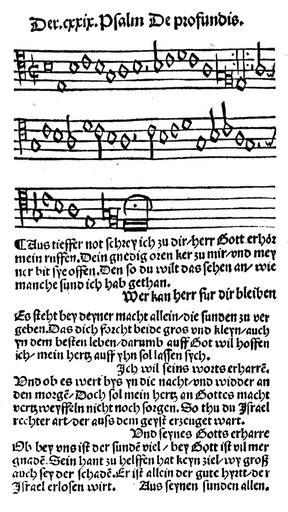 Der .cxxix. Psalm De profundis.
Aus tieffer not schrey ich zu dir/herr Gott erhör
mein ruffen. Dein gnedig oren ker zu mir/vnd mey
ner bit sye offen. Den so du wilt das sehen an/wie
manche sund ich hab gethan.
Wer kan herr fur dir bleiben
Es steht bey deyner macht allein/die sunden zu ver
geben. Das dich forcht beide gros vnd kleyn/auch
yn dem besten leben/darumb auff Got wil hoffen
ich/mein hertz auff yhn sol lassen sych.
Ich wil seins worts erharrē.
Vnd ob es wert bys yn die nacht/vnd widder an
den morgē/Doch sol mein hertz an Gottes macht
vertzweyffeln nicht noch sorgen. So thu du Israel
rechter art/der aus dem geyst erzeuget wart.
Vnd seynes Gotts erharre
Ob bey vns ist der sundē viel/bey Gott ist vil mer
gnadē. Sein hant zu helffen hat keyn ziel/wy groß
auch sey der schadē. Er ist allein der gute hyrtt/der
Israel erlosen wirt. Aus seynen sunden allen.